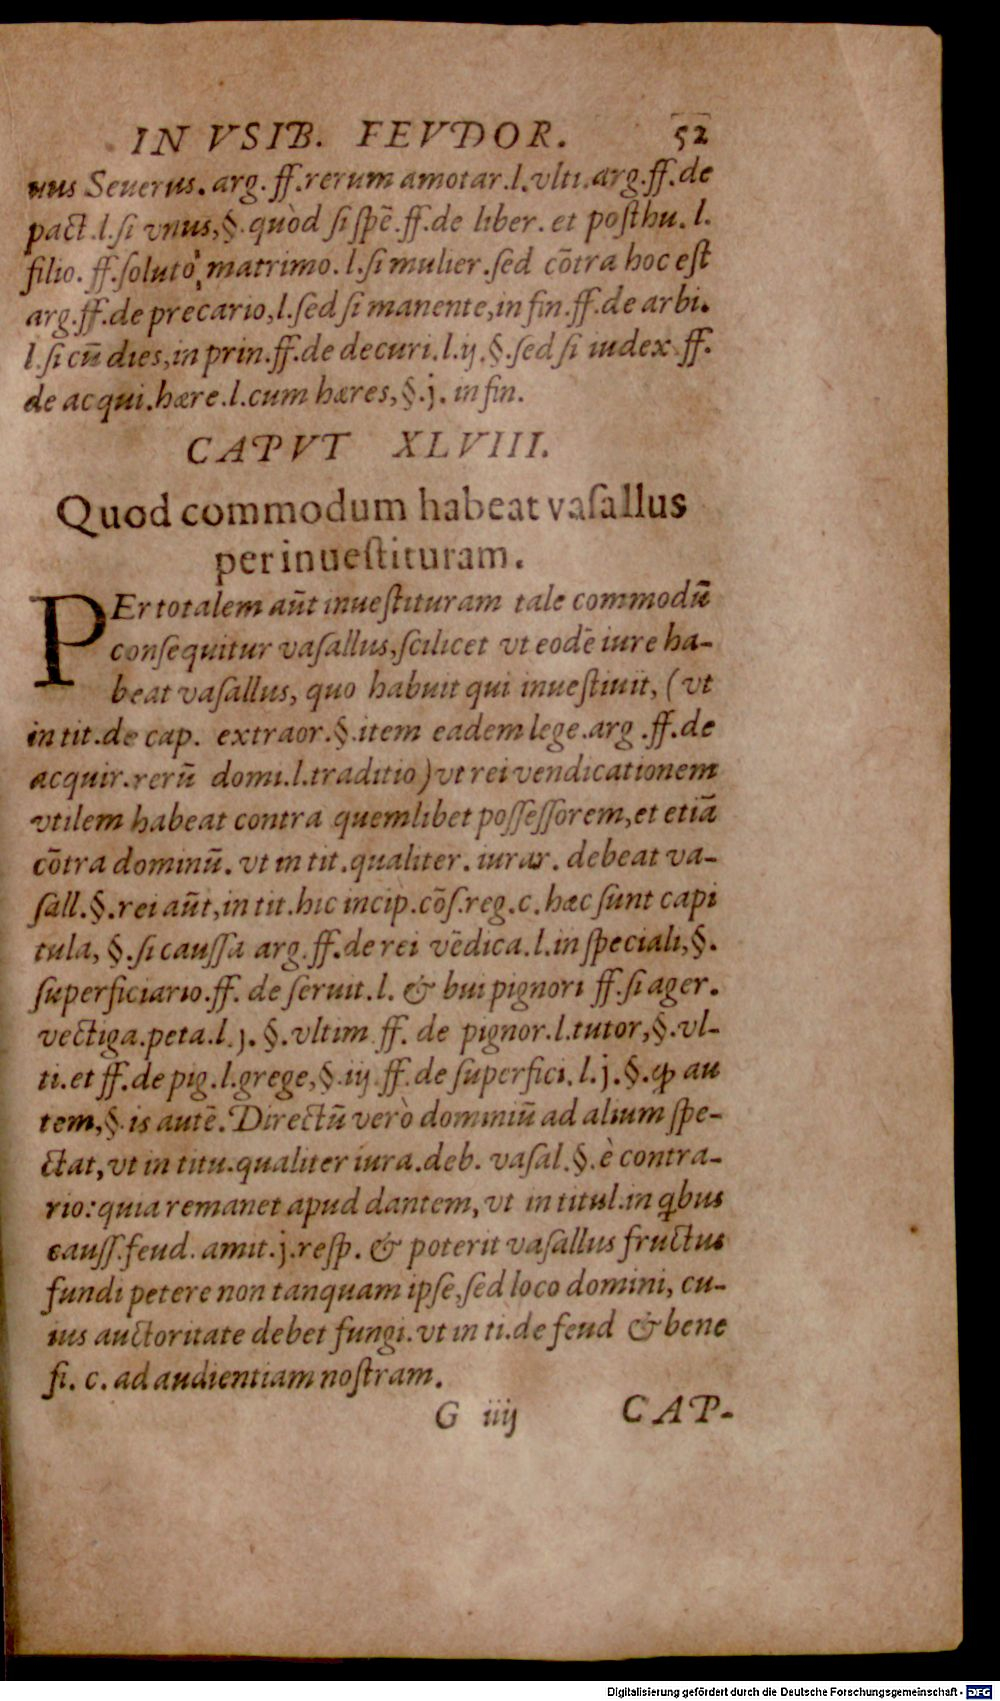 IN VSIB. FEVDOR. 52
nus Seuerus. arg. ff. rerum amotar. l. vlti. arg. ff. de
pact. l. si vnus, §. quòd si spē. ff. de liber. et posthu. l.
filio. ff. soluto matrimo. l. si mulier. sed cōtra hoc est
arg. ff. de precario, l. sed si manente, in fin. ff. de arbi.
l. si cū dies, in prin. ff. de decuri. l. ij. §. sed si iudex. ff.
de acqui. hære. l. cum hæres, §. j. in fin.
CAPVT XLVIII.
Quod commodum habeat vasallus
per inuestituram.
PEr totalem aūt inuestituram tale commodū
consequitur vasallus, scilicet vt eodē iure ha-
beat vasallus, quo habuit qui inuestiuit, (vt
in tit. de cap. extraor. §. item eadem lege. arg. ff. de
acquir. rerū domi. l. traditio) vt rei vendicationem
vtilem habeat contra quemlibet possessorem, et etiā
cōtra dominū. vt in tit. qualiter. iurar. debeat va-
sall. §. rei aūt, in tit. hic incip. cōs. reg. c. hæc sunt capi
tula, §. si caussa arg. ff. de rei vēdica. l. in speciali, §.
superficiario. ff. de seruit. l. & bui pignori ff. si ager.
vectiga. peta. l. j. §. vltim ff. de pignor. l. tutor, §. vl-
ti. et ff. de pig. l. grege, §. iij. ff. de superfici. l. j. §. ꝙ au
tem, §. is autē. Directū verò dominiū ad alium spe-
ctat, vt in titu. qualiter iura. deb. vasal. §. è contra-
rio: quia remanet apud dantem, vt in titul. in ꝗbus
causs. feud. amit. j. resp. & poterit vasallus fructus
fundi petere non tanquam ipse, sed loco domini, cu-
ius auctoritate debet fungi. vt in ti. de feud & bene
fi. c. ad audientiam nostram.
G iiij CAP-
Digitalisierung gefördert durch die Deutsche Forschungsgemeinschaft - DFG